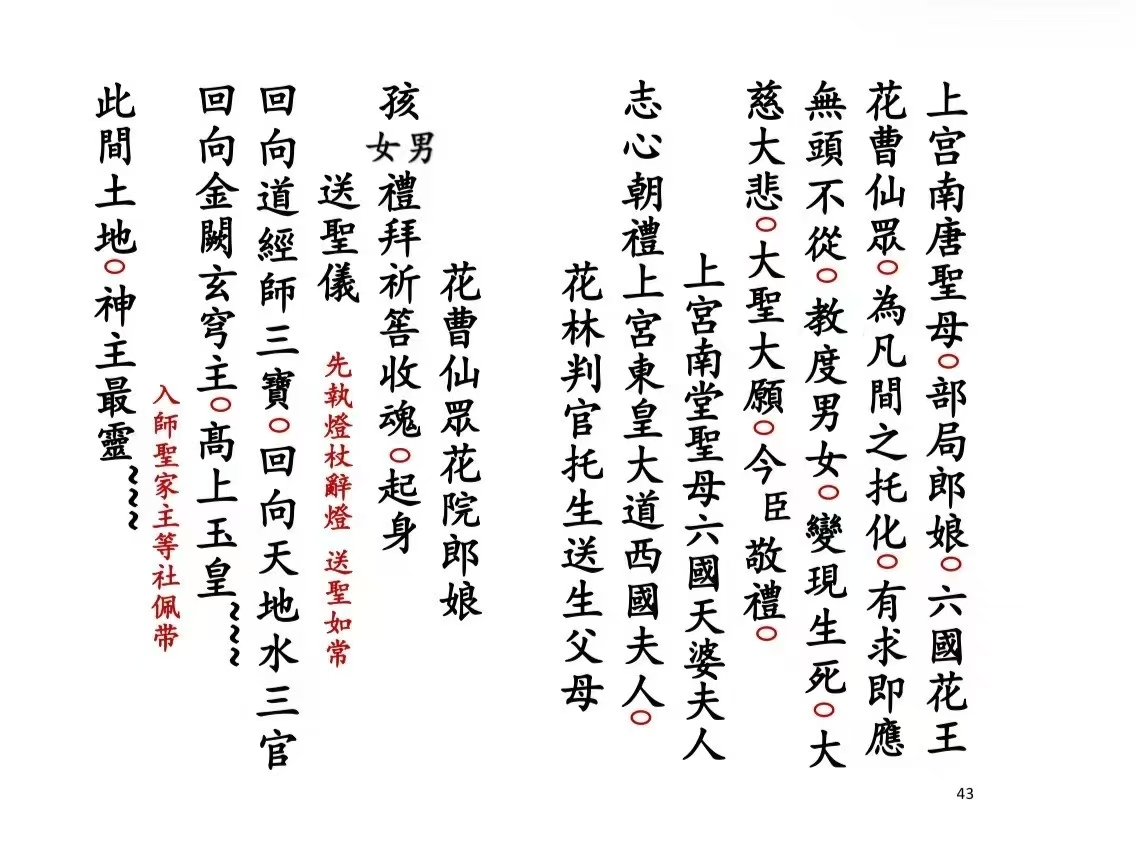 上宫南唐聖母○部局郎娘○六國花王
花曹仙眾○為凡間之托化○有求即應
無頭不從○教度男女○變現生死○大
慈大悲○大聖大願○今臣敬禮○
上宮南堂聖母六國天婆夫人
志心朝禮上宮東皇大道西國夫人○
花林判官托生送生父母
花曹仙眾花院郎娘
孩男女禮拜祈筶收魂○起身
送聖儀 先執燈杖辭燈 送聖如常
回向道經師三寶○回向天地水三官
回向金闕玄穹主○高上玉皇~~~
入師聖家主等社佩带
此間土地○神主最靈~~~
43